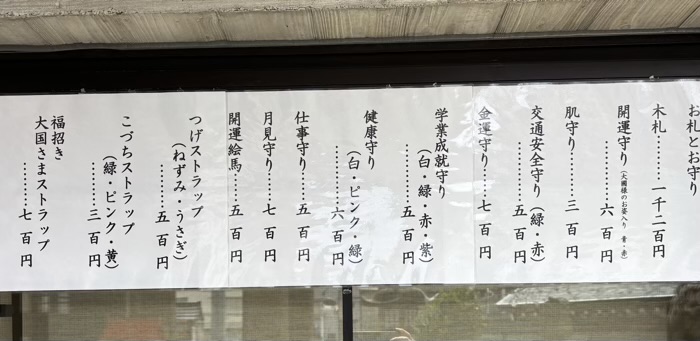 お札とお守り
木札………一千二百円
開運守り(大國様のお姿入り 青・赤)
………六百円
肌守り………三百円
交通安全守り(緑・赤)
………五百円
金運守り……七百円
学業成就守り
(白・緑・赤・紫)
………五百円
健康守り
(白・ピンク・緑)
………六百円
仕事守り……五百円
月見守り……七百円
開運絵馬……五百円
つげストラップ
(ねずみ・うさぎ)
………五百円
こづちストラップ
(緑・ピンク・黄)
………三百円
福招き
大国さまストラップ
………七百円